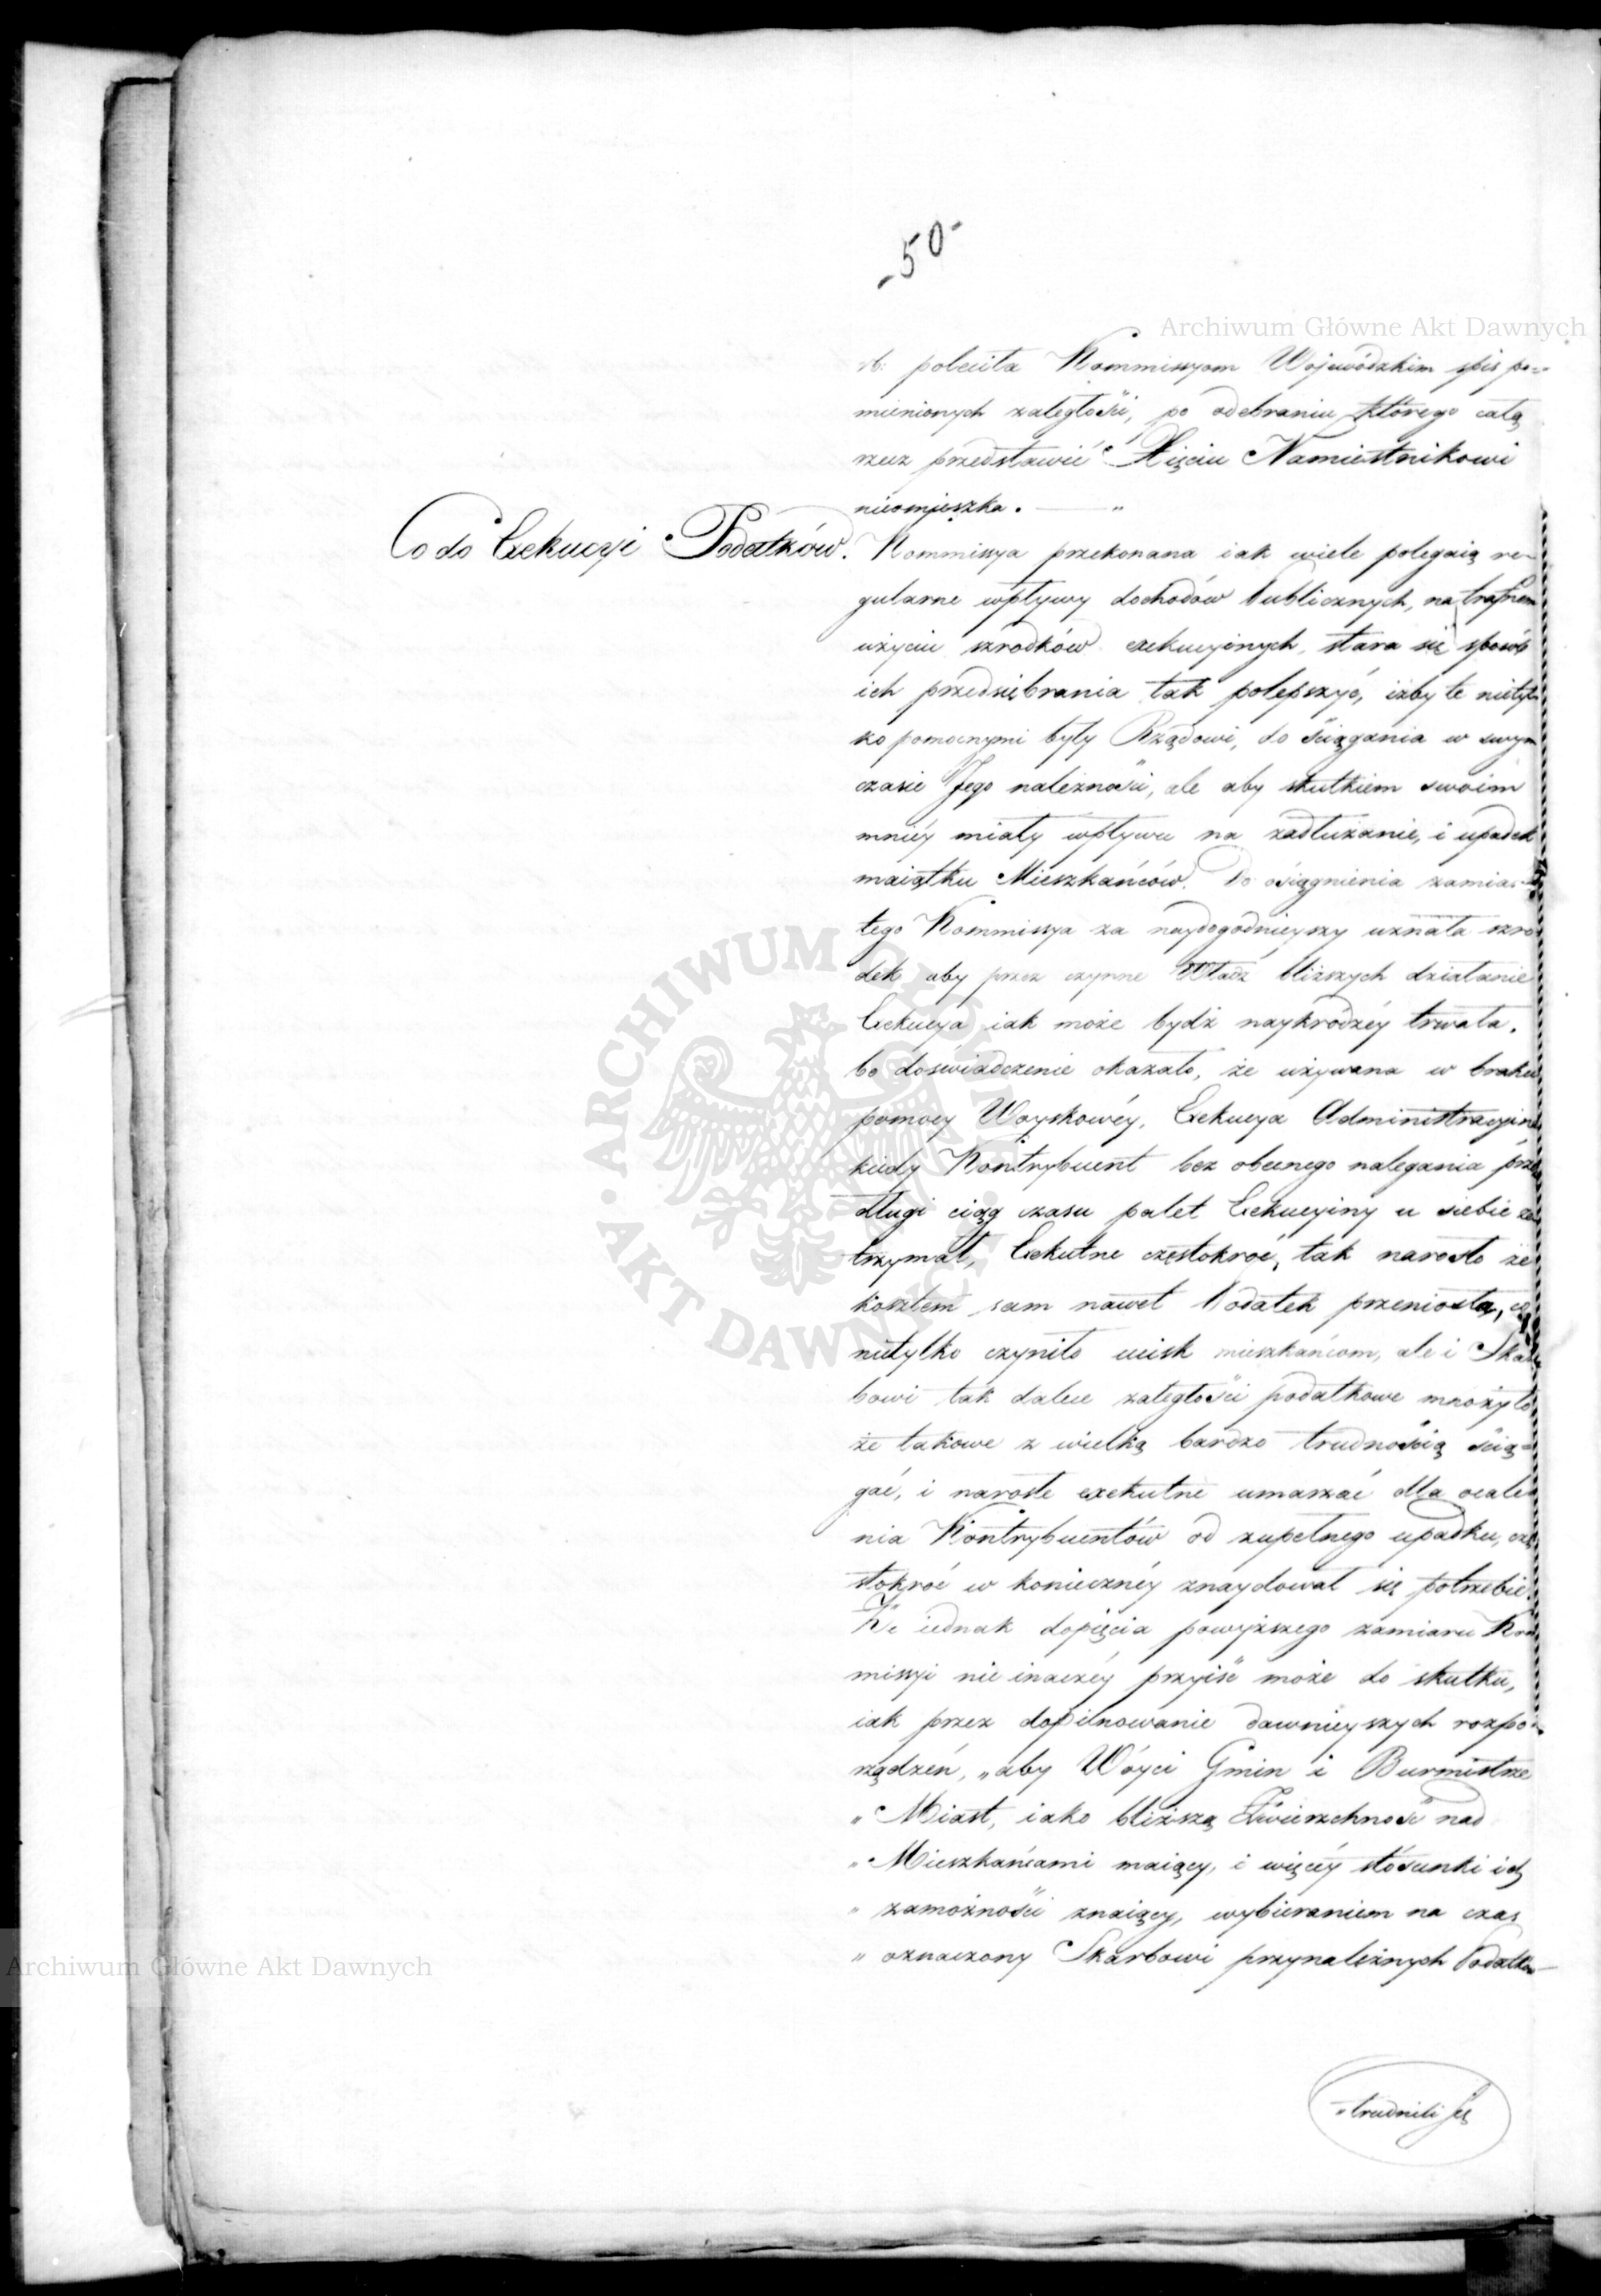 -50-
Archiwum Główne Akt Dawnych
r.b: poleciła Kommissyom Wojewódzkim spis po-
mienionych zaległości, po odebraniu którego całą
rzecz przedstawić Xięciu Namiestnikowi
nieomieszka. — "
Co do Exekucyi Podatków.
Kommissya przekonana iak wiele polegaią re-
gularne wpływy dochodów Publicznych, na trafnem
użyciu szrodków exekucyinych, stara się sposób
ich przedsiębrania tak polepszyć, iżby te nietyl-
ko pomocnymi były Rządowi, do ściągania w swym
czasie Jego należności, ale aby skutkiem swoim
mniéy miały wpływu na zadłużanie, i upadek
maiątku Mieszkańców. Do osiągnienia zamiaru
tego Kommissya za naydogodnieyszy uznała szro-
dek aby przez czynne Władz bliższych działanie
Exekucya iak może bydź naykrodzéy trwała,
bo doświadczenie okazało, że używana w braku
pomocy Woyskowéy, Exekucya Administracyina
kiedy Kontrybuent bez obecnego nalegania przez
długi ciąg czasu palet Exekucyiny u siebie za-
trzymał, Exekutne częstokroć, tak narosło że
kosztem sam nawet Podatek przeniosła, co
nietylko czyniło ucisk mieszkańcom, ale i Skar-
bowi tak dalece zaległości podatkowe mnożyło
że takowe z wielką bardzo trudnością ścią-
gać, i narosłe exekutne umarzać dla ocale-
nia Kontrybuentów od zupełnego upadku, czę-
stokroć w koniecznéy znaydował się potrzebie.
Że iednak dopięcia powyższego zamiaru Kom-
missyi nie inaczéy przyiść może do skutku,
iak przez dopilnowanie dawnieyszych rozpo-
rządzeń, „aby Wóyci Gmin i Burmistrze
„ Miast, iako bliższą Zwierzchność nad
„ Mieszkańcami maiący, i więcéy stósunki ich
„ zamożności znaiący, wybieraniem na czas
„ oznaczony Skarbowi przynależnych Podatków
„trudnili się
Archiwum Główne Akt Dawnych
ARCHIWUM GŁÓWNE AKT DAWNYCH